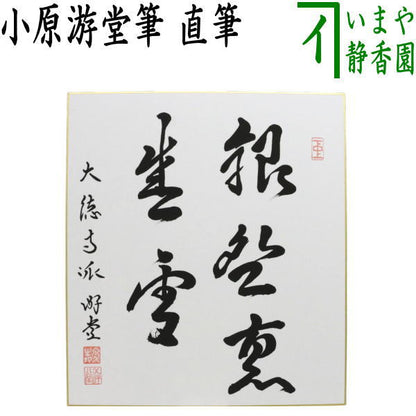 小原游堂筆 直筆
いまや
静香園
銀盌裏
盛雪
大徳寺派 游堂